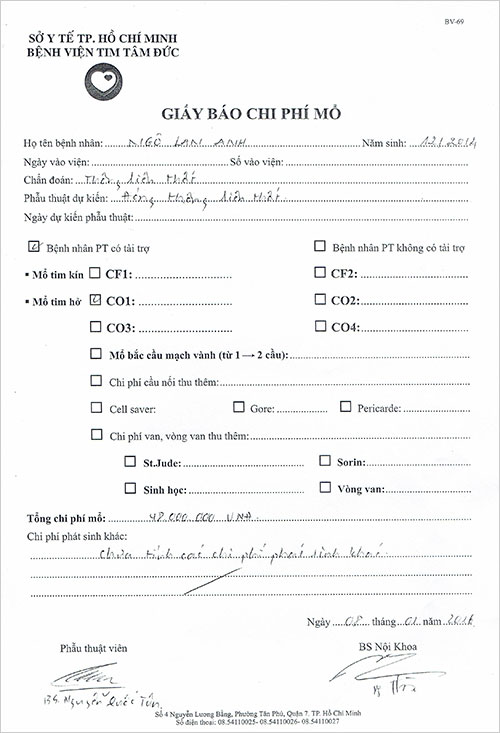 BV-69
SỞ Y TẾ TP. HỒ CHÍ MINH
BỆNH VIỆN TIM TÂM ĐỨC
GIẤY BÁO CHI PHÍ MỔ
Họ tên bệnh nhân: NGÔ LAN ANH Năm sinh: 12/2014
Ngày vào viện: Số vào viện:
Chẩn đoán: Thông liên thất
Phẫu thuật dự kiến: Đóng thông liên thất
Ngày dự kiến phẫu thuật:
Bệnh nhân PT có tài trợ Bệnh nhân PT không có tài trợ
▪ Mổ tim kín CF1: CF2:
▪ Mổ tim hở CO1: CO2:
CO3: CO4:
Mổ bắc cầu mạch vành (từ 1 → 2 cầu):
Chi phí cầu nối thu thêm:
Cell saver: Gore: Pericarde:
Chi phí van, vòng van thu thêm:
St.Jude: Sorin:
Sinh học: Vòng van:
Tổng chi phí mổ: 48.000.000 VNĐ.
Chi phí phát sinh khác:
Chưa tính các chi phí phát sinh khác
Ngày 08 tháng 01 năm 2016
Phẫu thuật viên BS Nội Khoa
BS. Nguyễn Quốc Tân
Số 4 Nguyễn Lương Bằng, Phường Tân Phú, Quận 7, TP. Hồ Chí Minh
Số điện thoại: 08.54110025- 08.54110026- 08.54110027